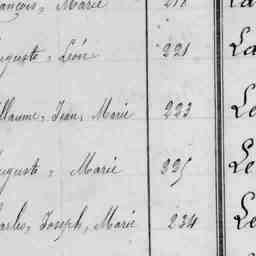 ançois, Marie 218 La
uguste, Léon 221 La
illaume, Jean, Marie 223 Le
uguste, Marie 225 Le
harles, Joseph, Marie 234 Le